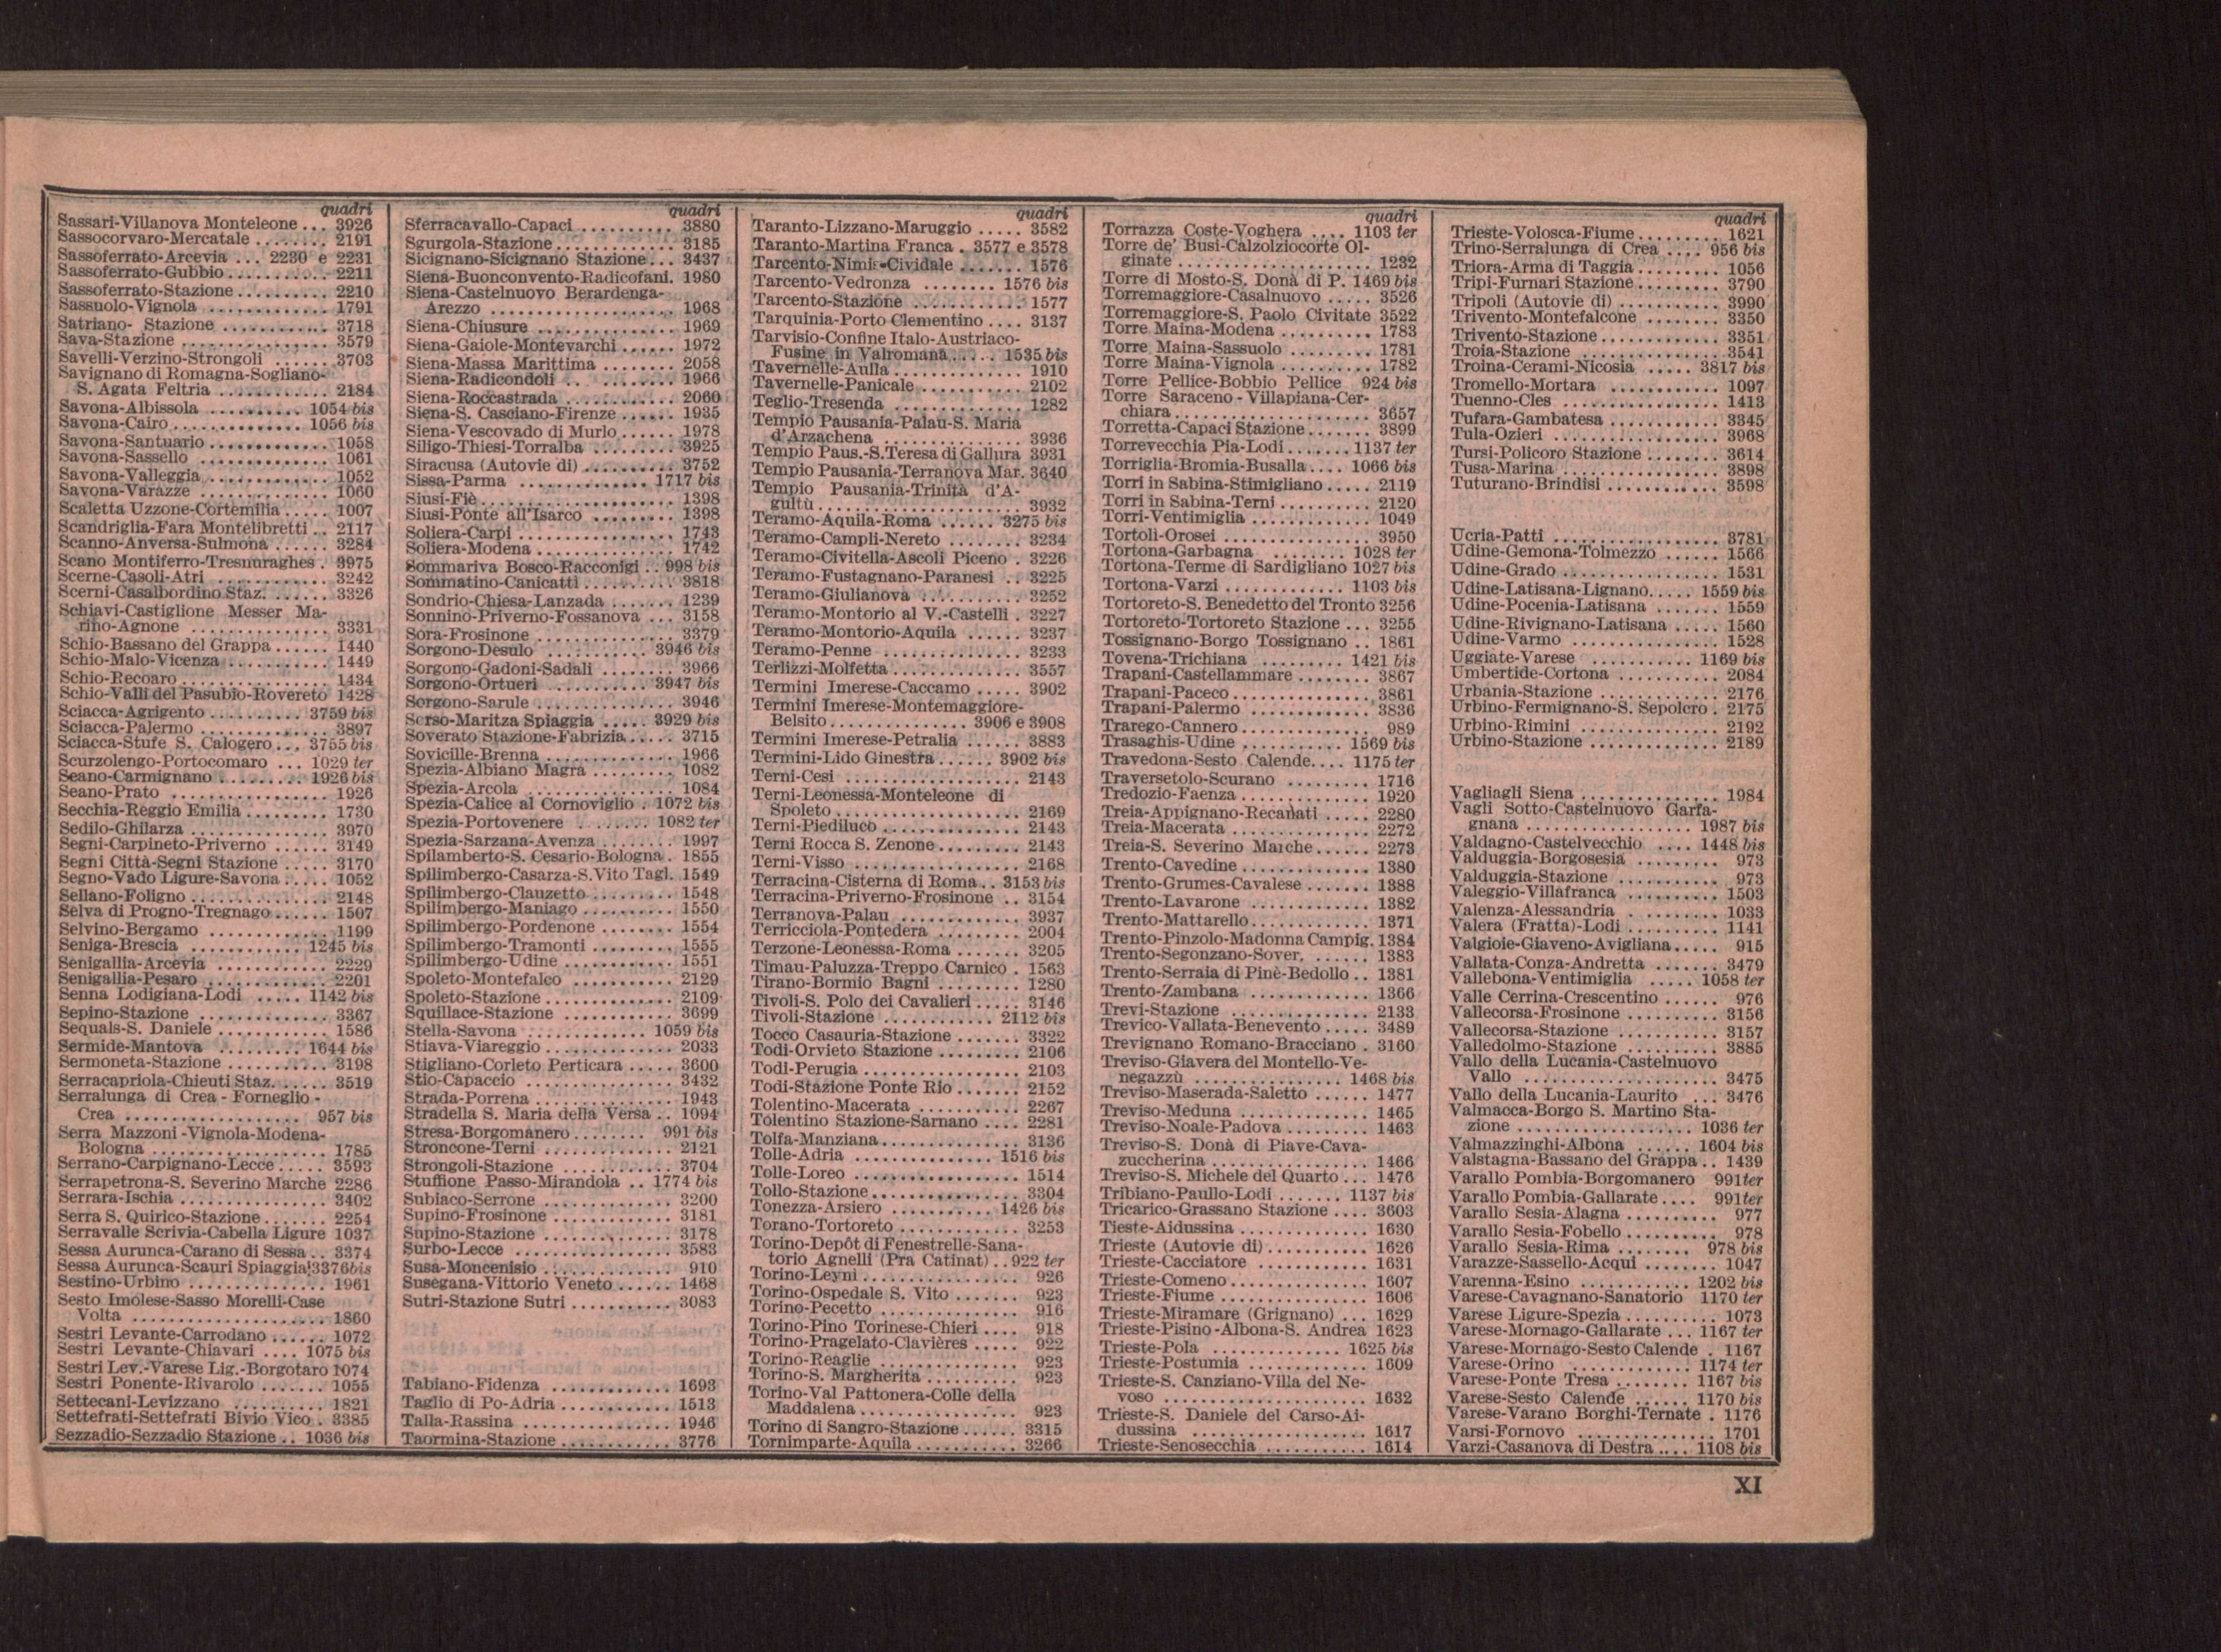 quadri
Sassari-Villanova Monteleone ... 3926
Sassocorvaro-Mercatale ........ 2191
Sassoferrato-Arcevia ... 2230 e 2231
Sassoferrato-Gubbio .......... 2211
Sassoferrato-Stazione .......... 2210
Sassuolo-Vignola ............. 1791
Satriano- Stazione ........... 3718
Sava-Stazione ................ 3579
Savelli-Verzino-Strongoli ..... 3703
Savignano di Romagna-Sogliano-
S. Agata Feltria ............ 2184
Savona-Albissola .......... 1054 bis
Savona-Cairo .............. 1056 bis
Savona-Santuario ............. 1058
Savona-Sassello .............. 1061
Savona-Valleggia ............. 1052
Savona-Varazze .............. 1060
Scaletta Uzzone-Cortemilia ..... 1007
Scandriglia-Fara Montelibretti .. 2117
Scanno-Anversa-Sulmona ...... 3284
Scano Montiferro-Tresnuraghes . 3975
Scerne-Casoli-Atri ............ 3242
Scerni-Casalbordino Staz. ...... 3326
Schiavi-Castiglione Messer Ma-
rino-Agnone ............... 3331
Schio-Bassano del Grappa ...... 1440
Schio-Malo-Vicenza ........... 1449
Schio-Recoaro ................ 1434
Schio-Valli del Pasubio-Rovereto 1428
Sciacca-Agrigento .......... 3759 bis
Sciacca-Palermo .............. 3897
Sciacca-Stufe S. Calogero ... 3755 bis
Scurzolengo-Portocomaro ... 1029 ter
Seano-Carmignano ......... 1926 bis
Seano-Prato ................. 1926
Secchia-Reggio Emilia ......... 1730
Sedilo-Ghilarza ............... 3970
Segni-Carpineto-Priverno ...... 3149
Segni Città-Segni Stazione ..... 3170
Segno-Vado Ligure-Savona ..... 1052
Sellano-Foligno ............... 2148
Selva di Progno-Tregnago ...... 1507
Selvino-Bergamo ............. 1199
Seniga-Brescia ............ 1245 bis
Senigallia-Arcevia ............ 2229
Senigallia-Pesaro ............. 2201
Senna Lodigiana-Lodi ..... 1142 bis
Sepino-Stazione .............. 3367
Sequals-S. Daniele ............ 1586
Sermide-Mantova ......... 1644 bis
Sermoneta-Stazione ........... 3198
Serracapriola-Chieuti Staz. ...... 3519
Serralunga di Crea - Forneglio -
Crea .................. 957 bis
Serra Mazzoni-Vignola-Modena-
Bologna ................... 1785
Serrano-Carpignano-Lecce ..... 3593
Serrapetrona-S. Severino Marche 2286
Serrara-Ischia ................ 3402
Serra S. Quirico-Stazione ....... 2254
Serravalle Scrivia-Cabella Ligure 1037
Sessa Aurunca-Carano di Sessa .. 3374
Sessa Aurunca-Scauri Spiaggia 3376bis
Sestino-Urbino ............... 1961
Sesto Imolese-Sasso Morelli-Case
Volta ..................... 1860
Sestri Levante-Carrodano ...... 1072
Sestri Levante-Chiavari .... 1075 bis
Sestri Lev.-Varese Lig.-Borgotaro 1074
Sestri Ponente-Rivarolo ....... 1055
Settecani-Levizzano .......... 1821
Settefrati-Settefrati Bivio Vico . 3385
Sezzadio-Sezzadio Stazione .. 1036 bis
quadri
Sferracavallo-Capaci .......... 3880
Sgurgola-Stazione ............. 3185
Sicignano-Sicignano Stazione ... 3437
Siena-Buonconvento-Radicofani. 1980
Siena-Castelnuovo Berardenga-
Arezzo .................... 1968
Siena-Chiusure ............... 1969
Siena-Gaiole-Montevarchi ...... 1972
Siena-Massa Marittima ........ 2058
Siena-Radicondoli .. ......... 1966
Siena-Roccastrada ............ 2060
Siena-S. Casciano-Firenze ...... 1935
Siena-Vescovado di Murlo ...... 1978
Siligo-Thiesi-Torralba ......... 3925
Siracusa (Autovie di) .......... 3752
Sissa-Parma .............. 1717 bis
Siusi-Fiè ..................... 1398
Siusi-Ponte all'Isarco ......... 1398
Soliera-Carpi ................. 1743
Soliera-Modena ............... 1742
Sommariva Bosco-Racconigi .. 998 bis
Sommatino-Canicattì .......... 3818
Sondrio-Chiesa-Lanzada ....... 1239
Sonnino-Priverno-Fossanova ... 3158
Sora-Frosinone ............... 3379
Sorgono-Desulo ........... 3946 bis
Sorgono-Gadoni-Sadali ........ 3966
Sorgono-Ortueri .......... 3947 bis
Sorgono-Sarule ............... 3946
Sorso-Maritza Spiaggia ..... 3929 bis
Soverato Stazione-Fabrizia ..... 3715
Sovicille-Brenna .............. 1966
Spezia-Albiano Magra ......... 1082
Spezia-Arcola ................ 1084
Spezia-Calice al Cornoviglio . 1072 bis
Spezia-Portovenere ........ 1082 ter
Spezia-Sarzana-Avenza ........ 1997
Spilamberto-S. Cesario-Bologna . 1855
Spilimbergo-Casarza-S.Vito Tagl. 1549
Spilimbergo-Clauzetto ......... 1548
Spilimbergo-Maniago .......... 1550
Spilimbergo-Pordenone ........ 1554
Spilimbergo-Tramonti ......... 1555
Spilimbergo-Udine ............ 1551
Spoleto-Montefalco ........... 2129
Spoleto-Stazione .............. 2109
Squillace-Stazione ............ 3699
Stella-Savona ............. 1059 bis
Stiava-Viareggio .............. 2033
Stigliano-Corleto Perticara ..... 3600
Stio-Capaccio ................ 3432
Strada-Porrena ............... 1943
Stradella S. Maria della Versa .. 1094
Stresa-Borgomanero ........ 991 bis
Stroncone-Terni .............. 2121
Strongoli-Stazione ............ 3704
Stuffione Passo-Mirandola .. 1774 bis
Subiaco-Serrone .............. 3200
Supino-Frosinone ............. 3181
Supino-Stazione .............. 3178
Surbo-Lecce ................. 3583
Susa-Moncenisio .............. 910
Susegana-Vittorio Veneto ...... 1468
Sutri-Stazione Sutri ........... 3083
Tabiano-Fidenza ............. 1693
Taglio di Po-Adria ............ 1513
Talla-Rassina ................ 1946
Taormina-Stazione ............ 3776
quadri
Taranto-Lizzano-Maruggio ..... 3582
Taranto-Martina Franca . 3577 e 3578
Tarcento-Nimis-Cividale ....... 1576
Tarcento-Vedronza ........ 1576 bis
Tarcento-Stazione ............ 1577
Tarquinia-Porto Clementino .... 3137
Tarvisio-Confine Italo-Austriaco-
Fusine in Valromana ..... 1535 bis
Tavernelle-Aulla .............. 1910
Tavernelle-Panicale ........... 2102
Teglio-Tresenda .............. 1282
Tempio Pausania-Palau-S. Maria
d'Arzachena ............... 3936
Tempio Paus.-S.Teresa di Gallura 3931
Tempio Pausania-Terranova Mar. 3640
Tempio Pausania-Trinità d'A-
gultù ...................... 3932
Teramo-Aquila-Roma ...... 3275 bis
Teramo-Campli-Nereto ........ 3234
Teramo-Civitella-Ascoli Piceno . 3226
Teramo-Fustagnano-Paranesi .. 3225
Teramo-Giulianova ........... 3252
Teramo-Montorio al V.-Castelli . 3227
Teramo-Montorio-Aquila ...... 3237
Teramo-Penne ............... 3233
Terlizzi-Molfetta .............. 3557
Termini Imerese-Caccamo ..... 3902
Termini Imerese-Montemaggiore-
Belsito .............. 3906 e 3908
Termini Imerese-Petralia ...... 3883
Termini-Lido Ginestra ...... 3902 bis
Terni-Cesi ................... 2143
Terni-Leonessa-Monteleone di
Spoleto .................... 2169
Terni-Piediluco ............... 2143
Terni Rocca S. Zenone ......... 2143
Terni-Visso .................. 2168
Terracina-Cisterna di Roma .. 3153 bis
Terracina-Priverno-Frosinone .. 3154
Terranova-Palau ............. 3937
Terricciola-Pontedera ......... 2004
Terzone-Leonessa-Roma ....... 3205
Timau-Paluzza-Treppo Carnico . 1563
Tirano-Bormio Bagni .......... 1280
Tivoli-S. Polo dei Cavalieri ..... 3146
Tivoli-Stazione ............ 2112 bis
Tocco Casauria-Stazione ....... 3322
Todi-Orvieto Stazione ......... 2106
Todi-Perugia ................. 2103
Todi-Stazione Ponte Rio ....... 2152
Tolentino-Macerata ........... 2267
Tolentino Stazione-Sarnano .... 2281
Tolfa-Manziana ............... 3136
Tolle-Adria ............... 1516 bis
Tolle-Loreo .................. 1514
Tollo-Stazione ................ 3304
Tonezza-Arsiero ........... 1426 bis
Torano-Tortoreto ............. 3253
Torino-Depôt di Fenestrelle-Sana-
torio Agnelli (Pra Catinat) .. 922 ter
Torino-Leynì ................. 926
Torino-Ospedale S. Vito ....... 923
Torino-Pecetto ............... 916
Torino-Pino Torinese-Chieri .... 918
Torino-Pragelato-Clavières ..... 922
Torino-Reaglie ............... 923
Torino-S. Margherita .......... 923
Torino-Val Pattonera-Colle della
Maddalena ................. 923
Torino di Sangro-Stazione ...... 3315
Tornimparte-Aquila ........... 3266
quadri
Torrazza Coste-Voghera .... 1103 ter
Torre de' Busi-Calzolziocorte Ol-
ginate ..................... 1232
Torre di Mosto-S. Donà di P. 1469 bis
Torremaggiore-Casalnuovo ..... 3526
Torremaggiore-S. Paolo Civitate 3522
Torre Maina-Modena .......... 1783
Torre Maina-Sassuolo ......... 1781
Torre Maina-Vignola .......... 1782
Torre Pellice-Bobbio Pellice 924 bis
Torre Saraceno - Villapiana-Cer-
chiara ..................... 3657
Torretta-Capaci Stazione ....... 3899
Torrevecchia Pia-Lodi ....... 1137 ter
Torriglia-Bromia-Busalla .... 1066 bis
Torri in Sabina-Stimigliano ..... 2119
Torri in Sabina-Terni .......... 2120
Torri-Ventimiglia ............. 1049
Tortolì-Orosei ................ 3950
Tortona-Garbagna ........ 1028 ter
Tortona-Terme di Sardigliano 1027 bis
Tortona-Varzi ............. 1103 bis
Tortoreto-S. Benedetto del Tronto 3256
Tortoreto-Tortoreto Stazione ... 3255
Tossignano-Borgo Tossignano .. 1861
Tovena-Trichiana ......... 1421 bis
Trapani-Castellammare ........ 3867
Trapani-Paceco ............... 3861
Trapani-Palermo ............. 3836
Trarego-Cannero .............. 989
Trasaghis-Udine ........... 1569 bis
Travedona-Sesto Calende .... 1175 ter
Traversetolo-Scurano ......... 1716
Tredozio-Faenza .............. 1920
Treia-Appignano-Recanati ..... 2280
Treia-Macerata ............... 2272
Treia-S. Severino Marche ...... 2273
Trento-Cavedine ............. 1380
Trento-Grumes-Cavalese ....... 1388
Trento-Lavarone ............. 1382
Trento-Mattarello ............. 1371
Trento-Pinzolo-Madonna Campig. 1384
Trento-Segonzano-Sover. ...... 1383
Trento-Serraia di Pinè-Bedollo .. 1381
Trento-Zambana ............. 1366
Trevi-Stazione ............... 2133
Trevico-Vallata-Benevento ..... 3489
Trevignano Romano-Bracciano . 3160
Treviso-Giavera del Montello-Ve-
negazzù ................ 1468 bis
Treviso-Maserada-Saletto ...... 1477
Treviso-Meduna .............. 1465
Treviso-Noale-Padova ......... 1463
Treviso-S. Donà di Piave-Cava-
zuccherina ................. 1466
Treviso-S. Michele del Quarto ... 1476
Tribiano-Paullo-Lodi ....... 1137 bis
Tricarico-Grassano Stazione .... 3603
Tieste-Aidussina .............. 1630
Trieste (Autovie di) ........... 1626
Trieste-Cacciatore ............ 1631
Trieste-Comeno ............... 1607
Trieste-Fiume ................ 1606
Trieste-Miramare (Grignano) ... 1629
Trieste-Pisino-Albona-S. Andrea 1623
Trieste-Pola .............. 1625 bis
Trieste-Postumia ............. 1609
Trieste-S. Canziano-Villa del Ne-
voso ...................... 1632
Trieste-S. Daniele del Carso-Ai-
dussina ................... 1617
Trieste-Senosecchia ........... 1614
quadri
Trieste-Volosca-Fiume ......... 1621
Trino-Serralunga di Crea .... 956 bis
Triora-Arma di Taggia ......... 1056
Tripi-Furnari Stazione ......... 3790
Tripoli (Autovie di) ............ 3990
Trivento-Montefalcone ........ 3350
Trivento-Stazione ............. 3351
Troia-Stazione ............... 3541
Troina-Cerami-Nicosia ..... 3817 bis
Tromello-Mortara ............ 1097
Tuenno-Cles ................. 1413
Tufara-Gambatesa ............ 3345
Tula-Ozieri .................. 3968
Tursi-Policoro Stazione ........ 3614
Tusa-Marina ................. 3898
Tuturano-Brindisi ............ 3598
Ucria-Patti .................. 3781
Udine-Gemona-Tolmezzo ...... 1566
Udine-Grado ................. 1531
Udine-Latisana-Lignano ..... 1559 bis
Udine-Pocenia-Latisana ....... 1559
Udine-Rivignano-Latisana ..... 1560
Udine-Varmo ................ 1528
Uggiate-Varese ........... 1169 bis
Umbertide-Cortona ........... 2084
Urbania-Stazione ............. 2176
Urbino-Fermignano-S. Sepolcro . 2175
Urbino-Rimini ............... 2192
Urbino-Stazione .............. 2189
Vagliagli Siena ............... 1984
Vagli Sotto-Castelnuovo Garfa-
gnana .................. 1987 bis
Valdagno-Castelvecchio .... 1448 bis
Valduggia-Borgosesia ......... 973
Valduggia-Stazione ........... 973
Valeggio-Villafranca ........... 1503
Valenza-Alessandria .......... 1033
Valera (Fratta)-Lodi .......... 1141
Valgioie-Giaveno-Avigliana ..... 915
Vallata-Conza-Andretta ....... 3479
Vallebona-Ventimiglia ..... 1058 ter
Valle Cerrina-Crescentino ...... 976
Vallecorsa-Frosinone .......... 3156
Vallecorsa-Stazione ........... 3157
Valledolmo-Stazione .......... 3885
Vallo della Lucania-Castelnuovo
Vallo ..................... 3475
Vallo della Lucania-Laurito ... 3476
Valmacca-Borgo S. Martino Sta-
zione .................. 1036 ter
Valmazzinghi-Albona ...... 1604 bis
Valstagna-Bassano del Grappa .. 1439
Varallo Pombia-Borgomanero 991ter
Varallo Pombia-Gallarate .... 991ter
Varallo Sesia-Alagna .......... 977
Varallo Sesia-Fobello .......... 978
Varallo Sesia-Rima ........ 978 bis
Varazze-Sassello-Acqui ........ 1047
Varenna-Esino ............ 1202 bis
Varese-Cavagnano-Sanatorio 1170 ter
Varese Ligure-Spezia .......... 1073
Varese-Mornago-Gallarate ... 1167 ter
Varese-Mornago-Sesto Calende . 1167
Varese-Orino ............. 1174 ter
Varese-Ponte Tresa ........ 1167 bis
Varese-Sesto Calende ...... 1170 bis
Varese-Varano Borghi-Ternate . 1176
Varsi-Fornovo ................ 1701
Varzi-Casanova di Destra .... 1108 bis
XI